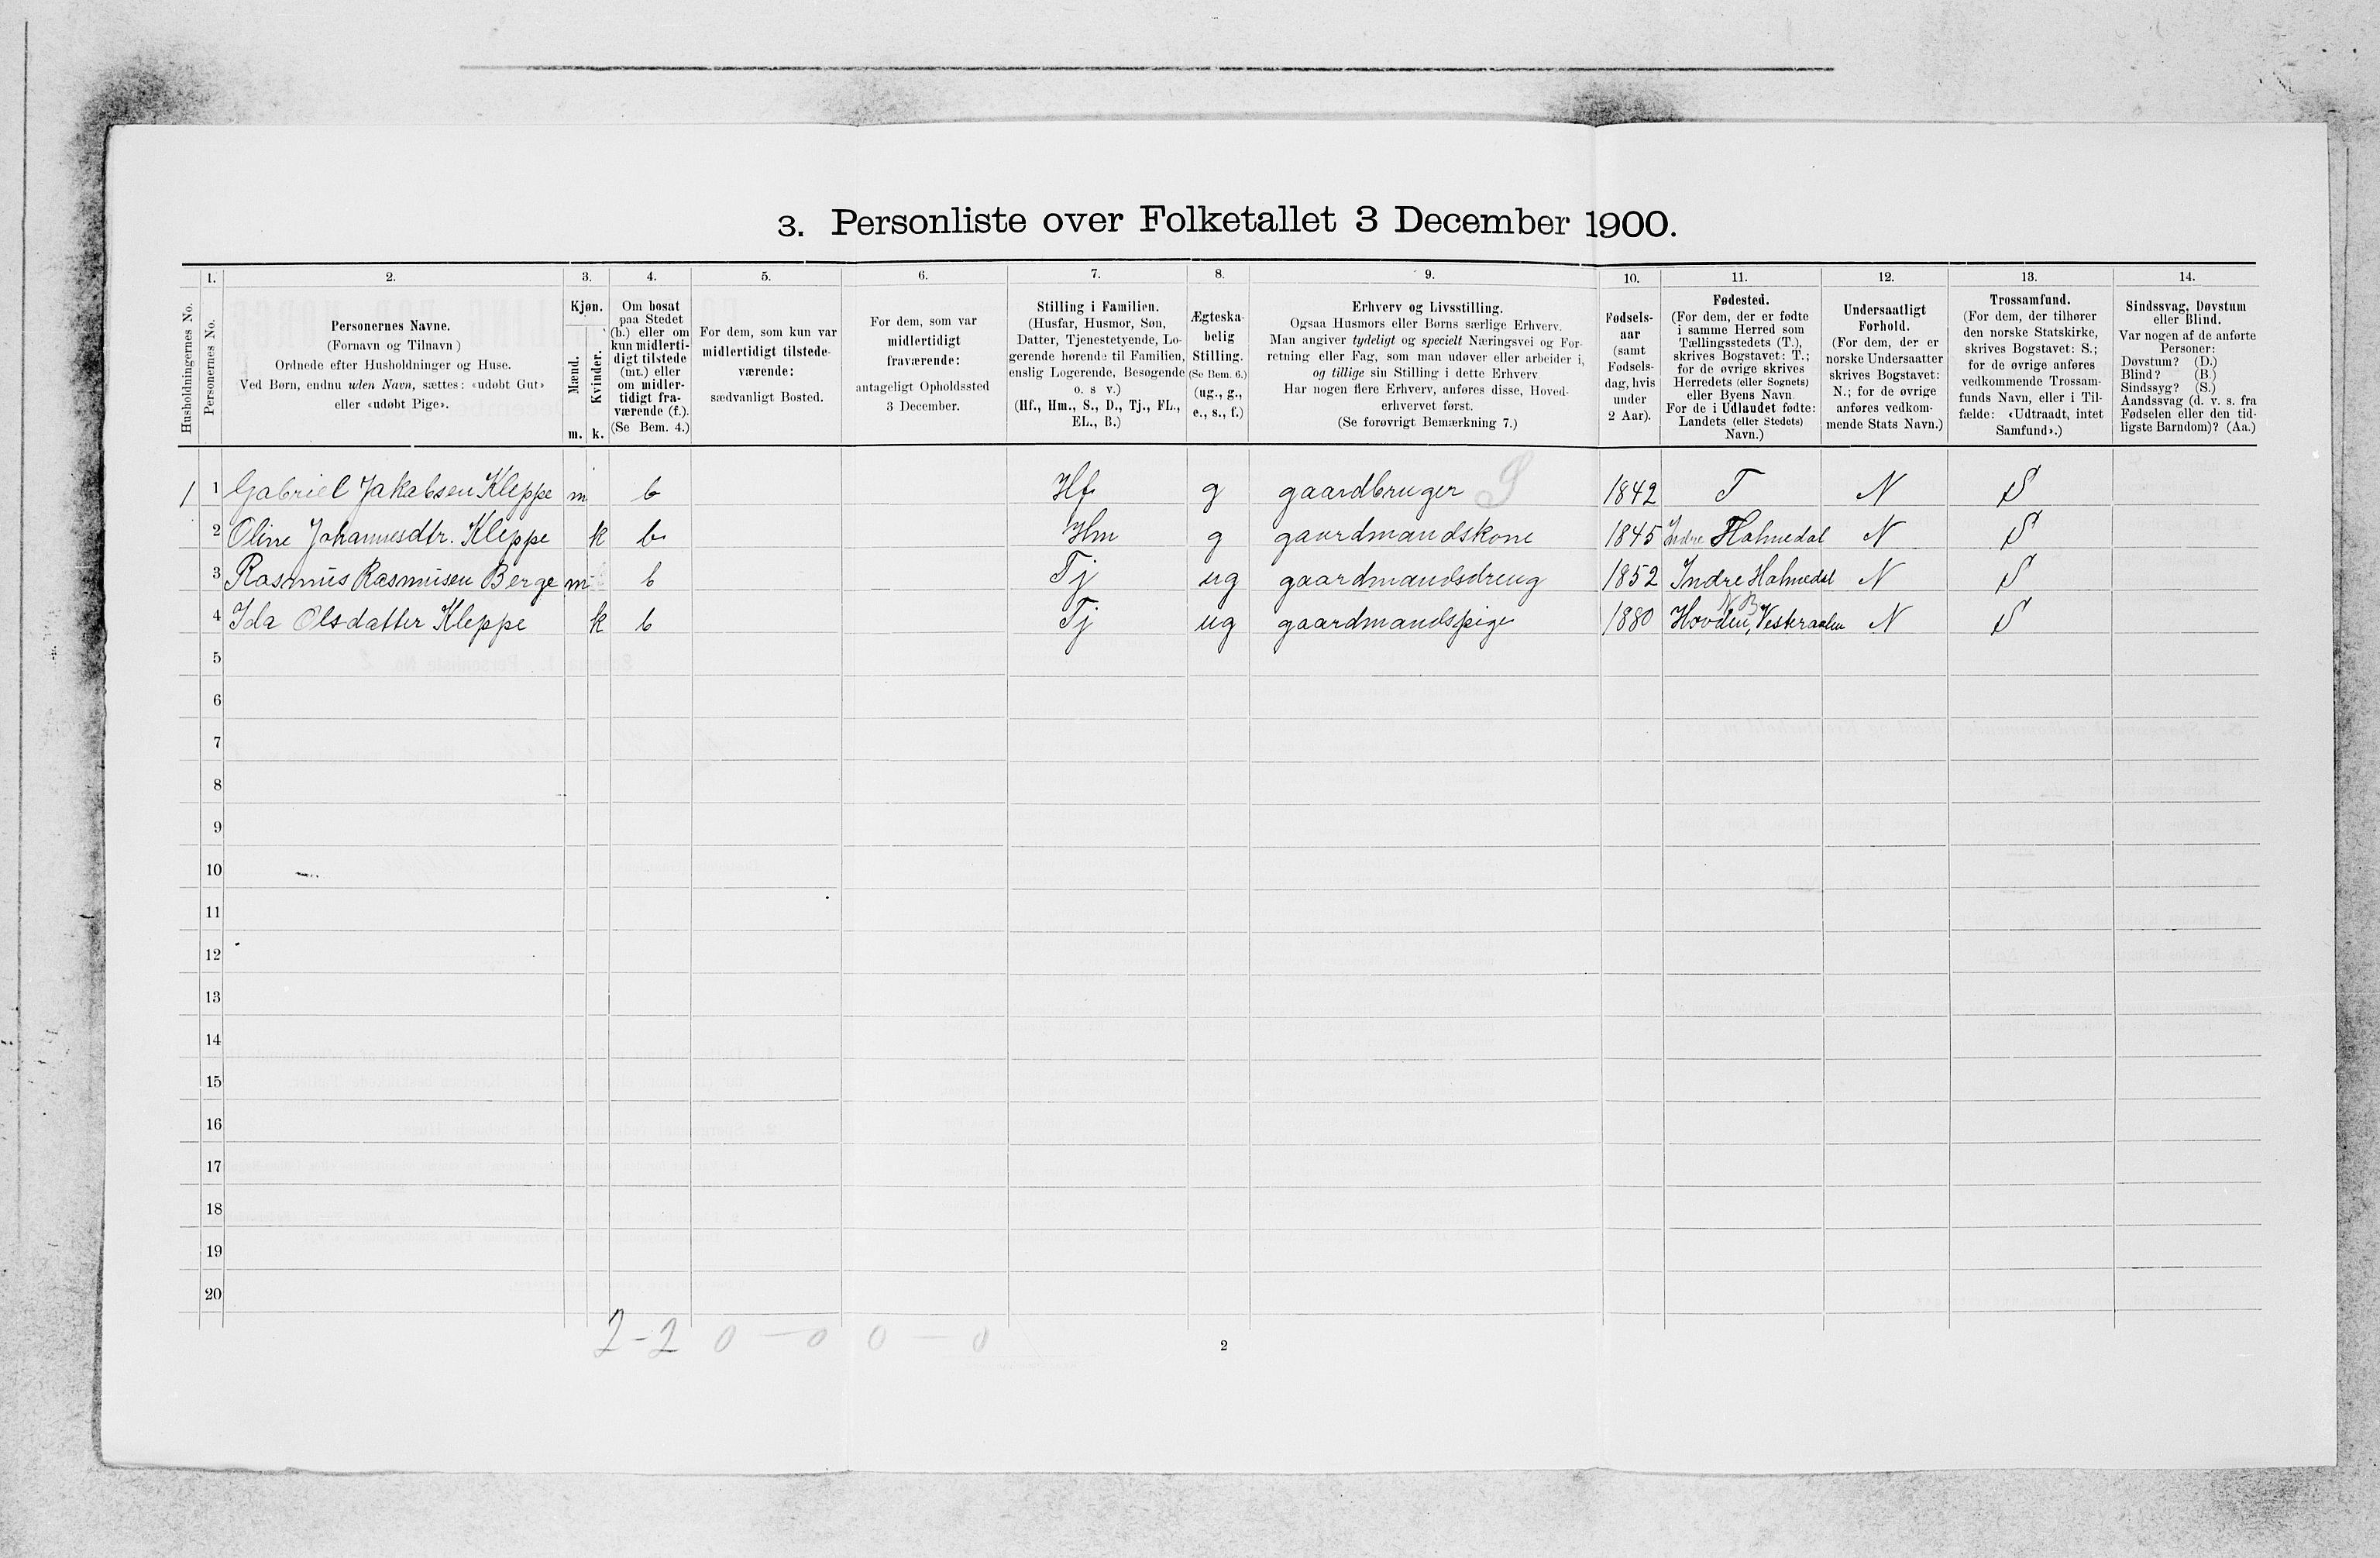 3. Personliste over Folketallet 3 December 1900.
Husholdningernes No.
1.
Personernes No.
2.
Personernes Navne.
(Fornavn og Tilnavn)
Ordnede efter Husholdninger og Huse.
Ved Børn, endnu uden Navn, sættes: «udøbt Gut»
eller «udøbt Pige».
3.
Kjøn.
Mænd.
Kvinder.
m. k.
4.
Om bosat
paa Stedet
(b.) eller om
kun midlerti-
digt tilstede
(mt.) eller
om midler-
tidigt fra-
værende (f.).
(Se Bem. 4.)
5.
For dem, som kun var
midlertidigt tilstede-
værende:
sædvanligt Bosted.
6.
For dem, som var
midlertidigt
fraværende:
antageligt Opholdssted
3 December.
7.
Stilling i Familien.
(Husfar, Husmor, Søn,
Datter, Tjenestetyende, Lo-
gerende hørende til Familien,
enslig Logerende, Besøgende
o. s v.)
(Hf., Hm., S., D., Tj., FL.,
EL., B.)
8.
Ægteska-
belig
Stilling.
(Se Bem. 6.)
(ug., g.,
e., s., f.)
9.
Erhverv og Livsstilling.
Ogsaa Husmors eller Børns særlige Erhverv.
Man angiver tydeligt og specielt Næringsvei og For-
retning eller Fag, som man udøver eller arbeider i,
og tillige sin Stilling i dette Erhverv
Har nogen flere Erhverv, anføres disse, Hoved-
erhvervet først.
(Se forøvrigt Bemærkning 7.)
10.
Fødsels-
aar
(samt
Fødsels-
dag, hvis
under
2 Aar).
11.
Fødested.
(For dem, der er fødte
i samme Herred som
Tællingsstedets (T.),
skrives Bogstavet: T.;
for de øvrige skrives
Herredets (eller Sognets)
eller Byens Navn.
For de i Udlandet fødte:
Landets (eller Stedets)
Navn.)
12.
Undersaatligt
Forhold.
(For dem, der er
norske Undersaatter
skrives Bogstavet:
N.; for de øvrige
anføres vedkom-
mende Stats Navn.)
13.
Trossamfund.
(For dem, der tilhører
den norske Statskirke,
skrives Bogstavet: S.;
for de øvrige anføres
vedkommende Trossam-
funds Navn, eller i Til-
fælde: «Udtraadt, intet
Samfund».)
14.
Sindssvag, Døvstum
eller Blind.
Var nogen af de anførte
Personer:
Døvstum? (D.)
Blind? (B.)
Sindssyg? (S.)
Aandssvag (d. v. s. fra
Fødselen eller den tid-
ligste Barndom)? (Aa.)
1 1 Gabriel Jakobsen Kleppe m b Hf g gaardbruger S 1842 T N S
2 Oline Johannesdtr. Kleppe k b Hm g gaardmandskone 1845 Indre Holmedal N S
3 Rasmus Rasmusen Berge m b Tj ug gaardmandsdreng 1852 Indre Holmedal N S
4 Ida Olsdatter Kleppe k b Tj ug gaardmandspige 1880 Hovden, Vesteraalen N S
5
6
7
8
9
10
11
12
13
14
15
16
17
18
19
20
2-2 0 — 0 0 — 0
2